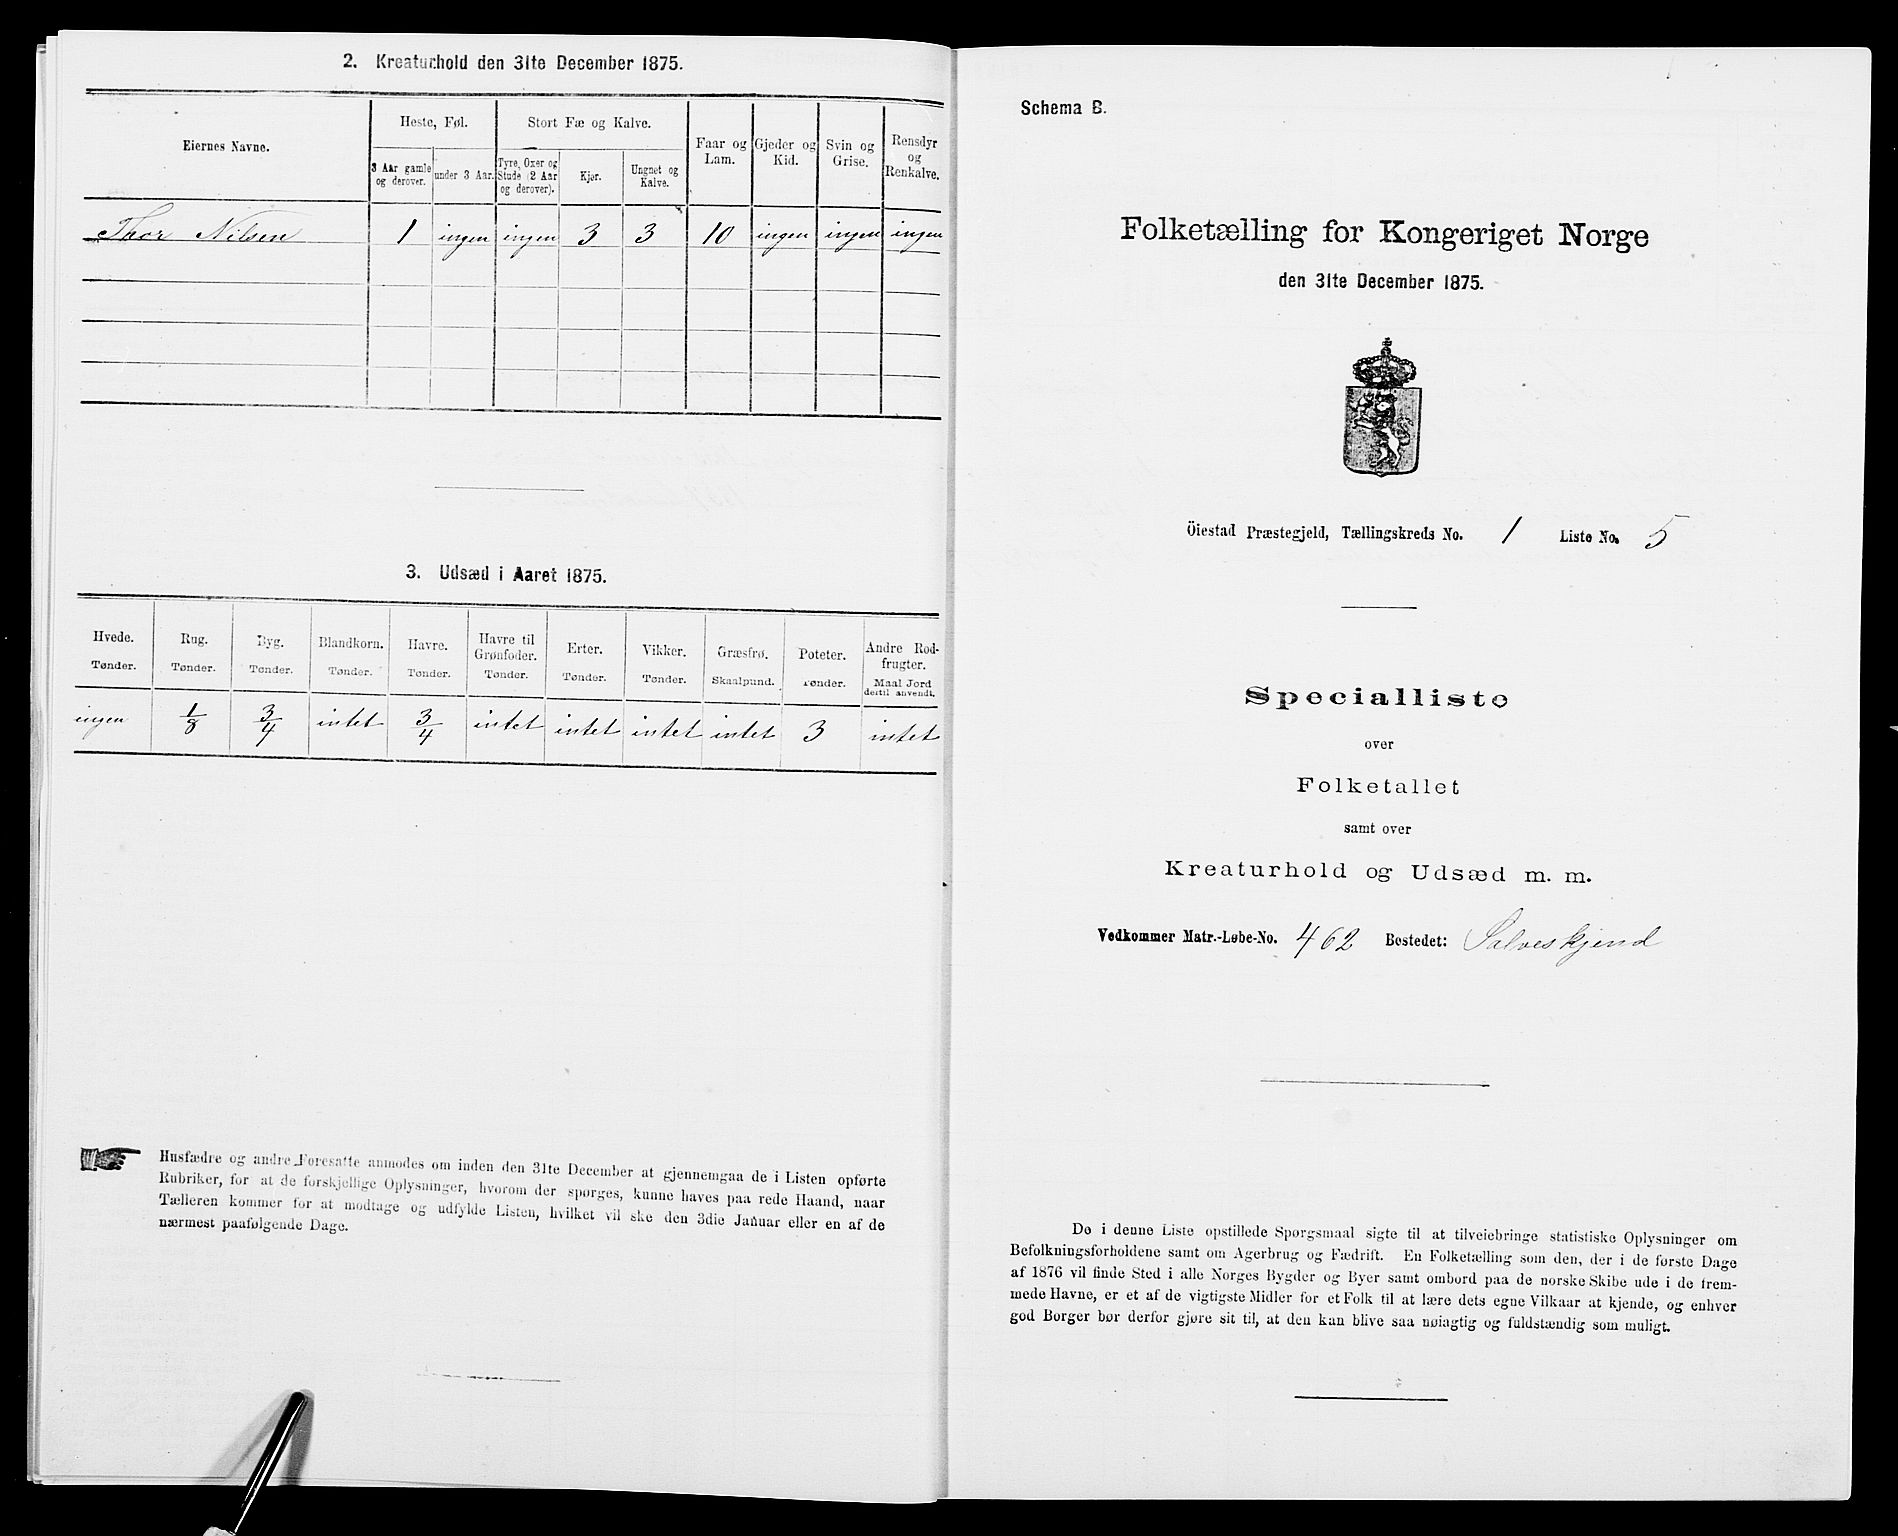 2. Kreaturhold den 31te December 1875.
Eiernes Navne.
Heste, Føl.
Stort Fæ og Kalve.
Faar og Lam.
Gjeder og Kid.
Svin og Grise.
Rensdyr og Renkalve.
3 Aar gamle og derover.
under 3 Aar.
Tyre, Oxer og Stude (2 Aar og derover).
Kjør.
Ungnet og Kalve.
Thor Nilsen 1 ingen ingen 3 3 10 ingen ingen ingen
3. Udsæd i Aaret 1875.
Hvede. Tønder.
Rug. Tønder.
Byg. Tønder.
Blandkorn. Tønder.
Havre. Tønder.
Havre til Grønfoder. Tønder.
Erter. Tønder.
Vikker. Tønder.
Græsfrø. Skaalpund.
Poteter. Tønder.
Andre Rodfrugter. Maal Jord dertil anvendt.
ingen 1/8 3/4 intet 3/4 intet intet intet intet 3 intet
Husfædre og andre Foresatte anmodes om inden den 31te December at gjennemgaa de i Listen opførte
Rubriker, for at de forskjellige Oplysninger, hvorom der spørges, kunne haves paa rede Haand, naar
Tælleren kommer for at modtage og udfylde Listen, hvilket vil ske den 3die Januar eller en af de
nærmest paafølgende Dage.
Schema B.
Folketælling for Kongeriget Norge
den 31te December 1875.
Öiestad Præstegjeld, Tællingskreds No. 1 Liste No. 5
Specialliste
over
Folketallet
samt over
Kreaturhold og Udsæd m. m.
Vedkommer Matr.-Løbe-No. 462 Bostedet: Salveskjend
De i denne Liste opstillede Spørgsmaal sigte til at tilveiebringe statistiske Oplysninger om
Befolkningsforholdene samt om Agerbrug og Fædrift. En Folketælling som den, der i de første Dage
af 1876 vil finde Sted i alle Norges Bygder og Byer samt ombord paa de norske Skibe ude i de frem-
mede Havne, er et af de vigtigste Midler for et Folk til at lære dets egne Vilkaar at kjende, og enhver
god Borger bør derfor gjøre sit til, at den kan blive saa nøiagtig og fuldstændig som muligt.